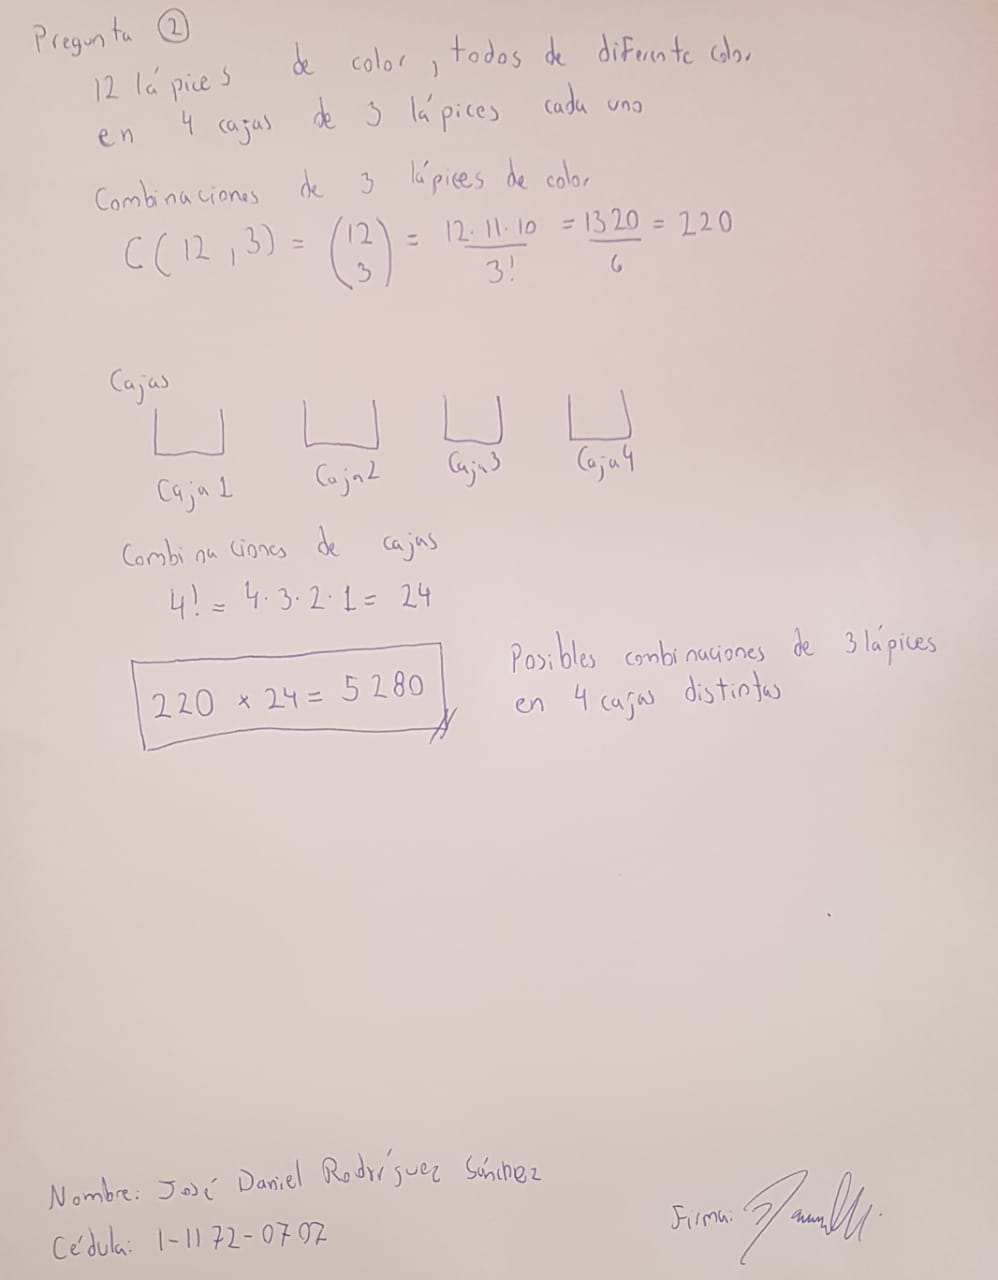 Pregunta 2
12 lápices de color, todos de diferente color
en 4 cajas de 3 lápices cada uno
Combinaciones de 3 lápices de color
C(12,3) = (12 3) = 12·11·10 / 3! = 1320 / 6 = 220
Cajas
Caja 1 Caja 2 Caja 3 Caja 4
Combinaciones de cajas
4! = 4·3·2·1 = 24
220 × 24 = 5280
Posibles combinaciones de 3 lápices
en 4 cajas distintas
Nombre: José Daniel Rodríguez Sánchez
Cédula: 1-1172-0707
Firma: